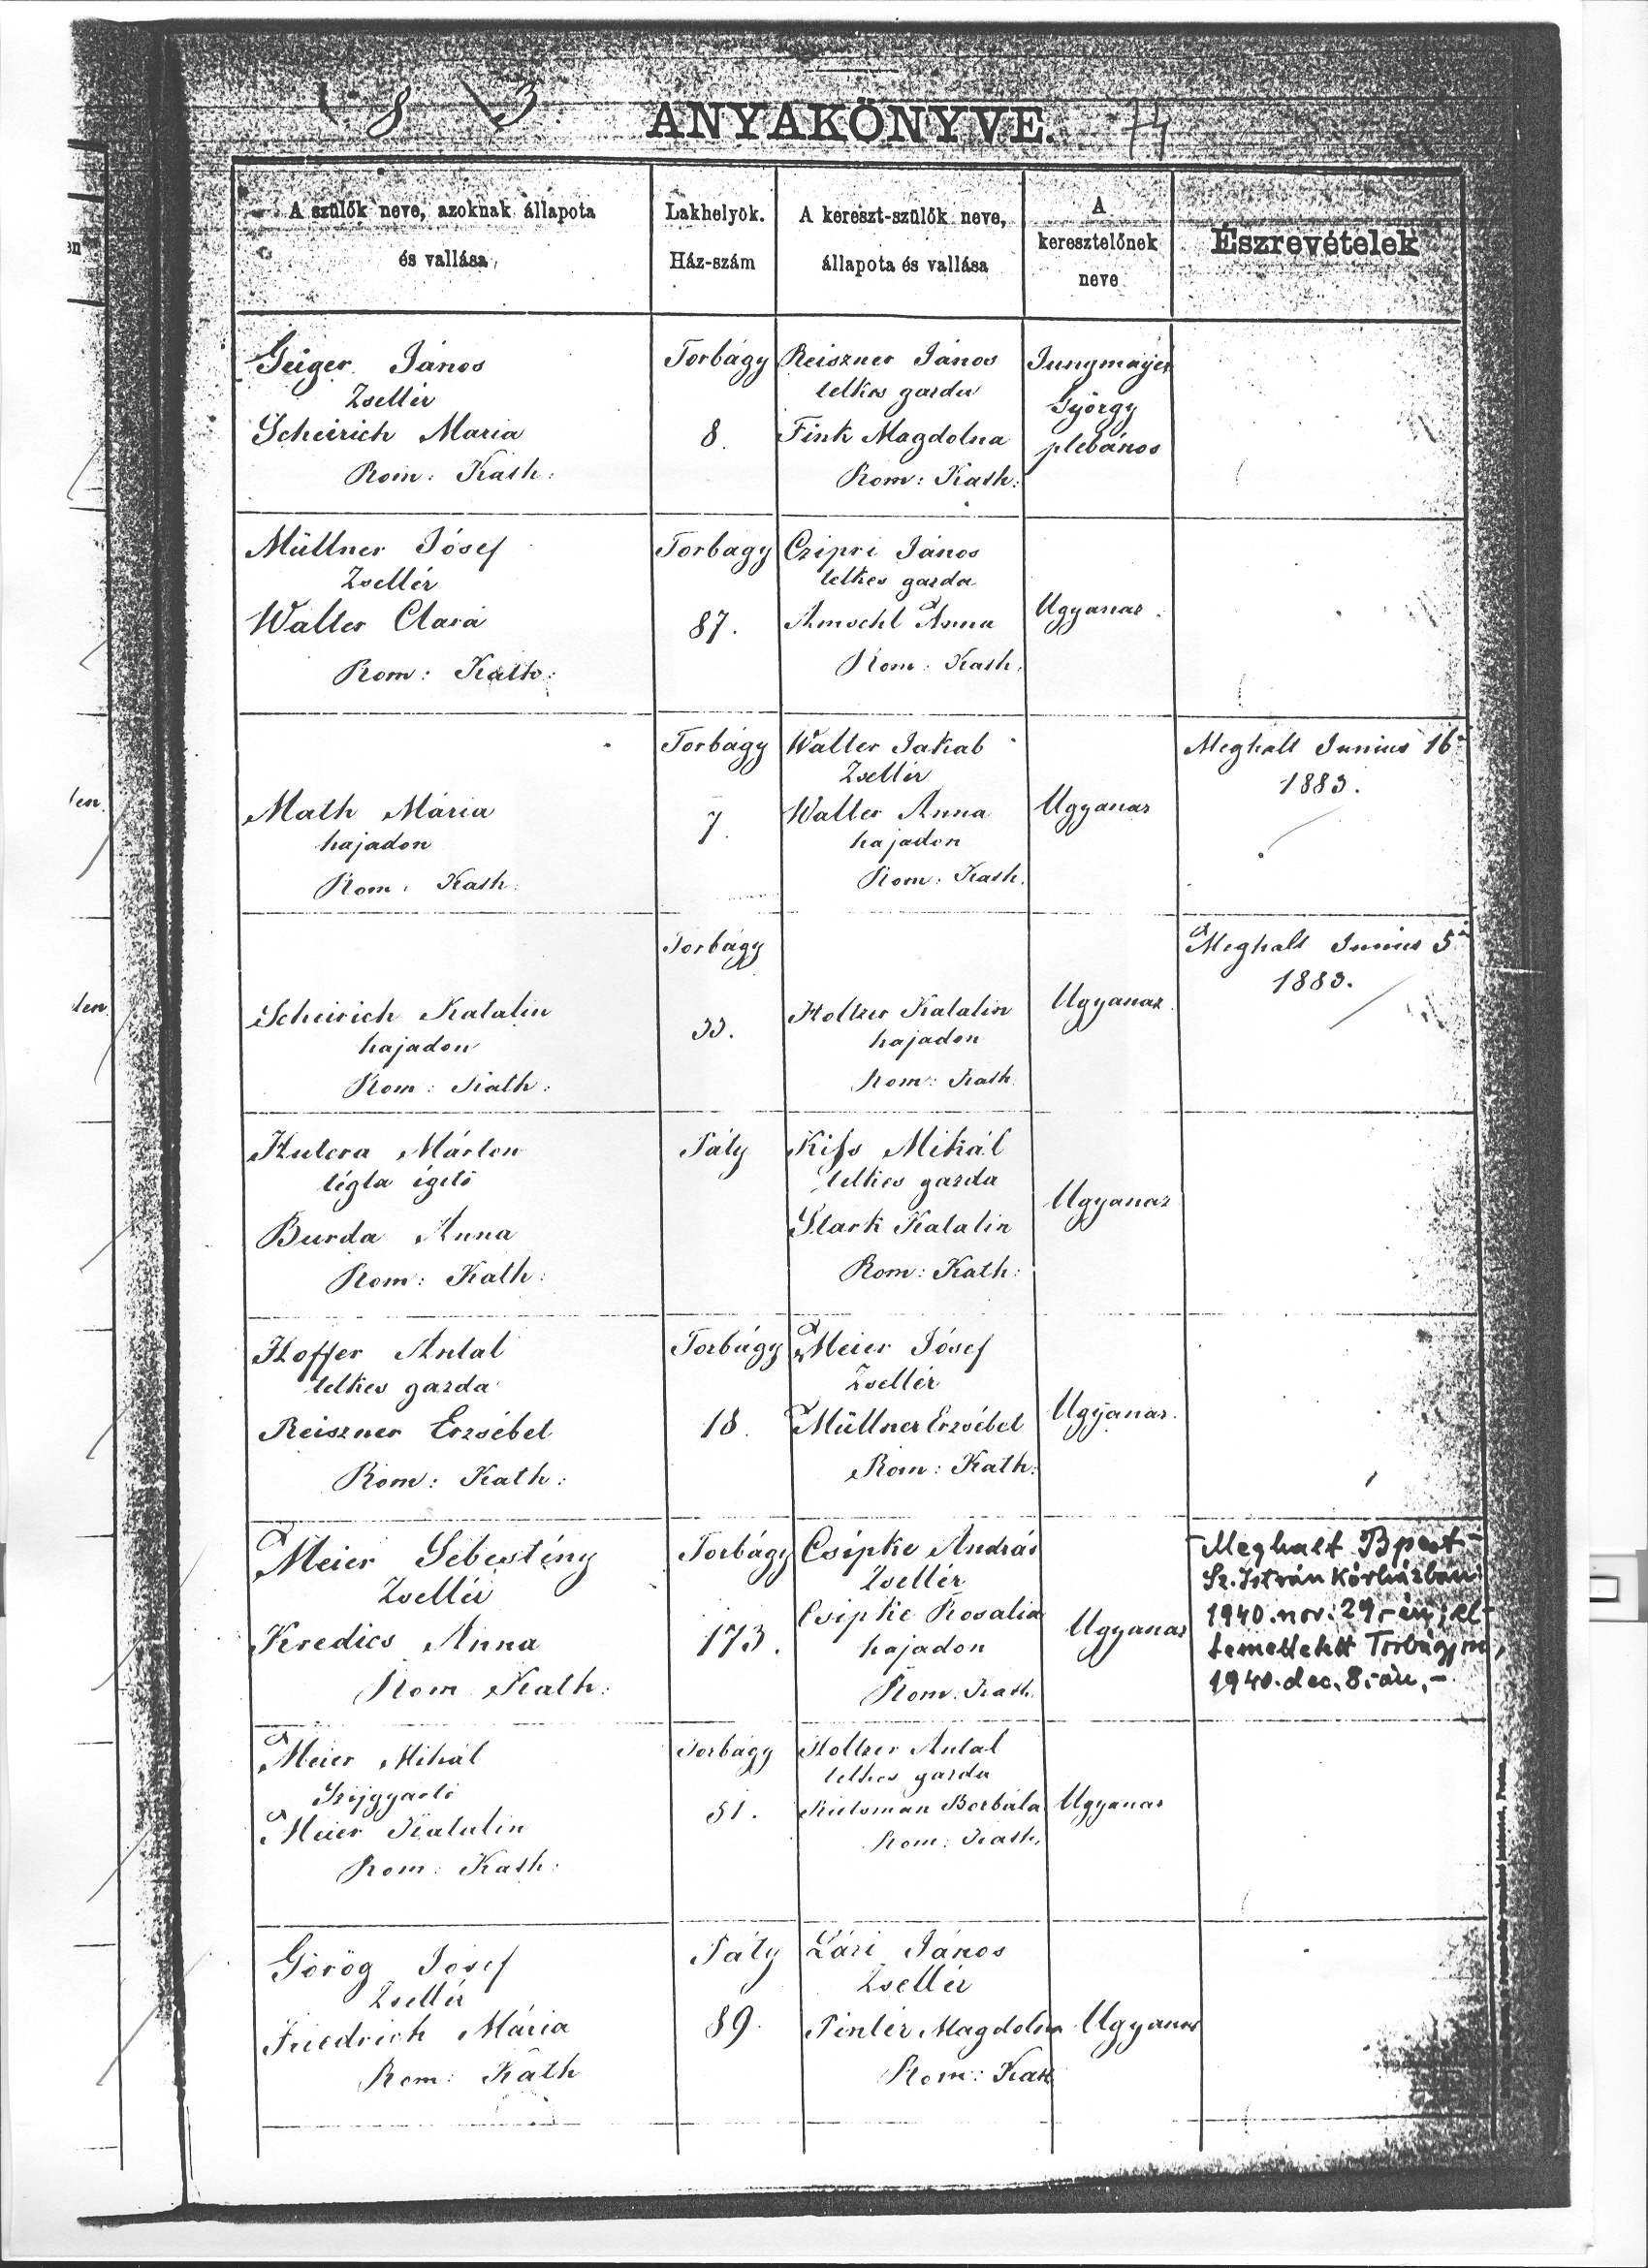 18 3
ANYAKÖNYVE. 74
A szülők neve, azoknak állapota
és vallása
Lakhelyök.
Ház-szám
A kereszt-szülők neve,
állapota és vallása
A
keresztelőnek
neve
Észrevételek
Geiger János
Zsellér
Scheirich Maria
Rom: Kath:
Torbágy
8.
Reiszner János
telkes gazda
Fink Magdolna
Rom: Kath:
Jungmayer
György
plébános
Müllner Jósef
Zsellér
Walter Clara
Rom: Kath:
Torbagy
87.
Czipri János
telkes gazda
Amschl Anna
Rom: Kath.
Ugyanaz.
Math Mária
hajadon
Rom: Kath:
Torbágy
7.
Walter Jakab
Zsellér
Walter Anna
hajadon
Rom: Kath.
Ugyanaz
Meghalt Junius 16
1883.
Scheirich Katalin
hajadon
Rom: Kath:
Torbágy
33.
Holtzer Katalin
hajadon
Rom: Kath
Ugyanaz
Meghalt Junius 5
1883.
Kutera Márton
tégla égető
Burda Anna
Rom: Kath:
Páty
Kiss Mihál
telkes gazda
Stark Katalin
Rom: Kath:
Ugyanaz
Hoffer Antal
telkes gazda
Reiszner Erzsébet
Rom: Kath:
Torbágy
18.
Meier Jósef
Zsellér
Müllner Erzsébet
Rom: Kath:
Ugyanaz.
Meier Sebestény
Zsellér
Kredics Anna
Rom Kath:
Torbágy
173.
Csipke András
Zsellér
Csipke Rosalia
hajadon
Rom: Kath.
Ugyanaz
Meghalt Bpest
Sz. István Kórházban
1940. nov. 29-én, el-
temettetett Torbágyon,
1940. dec. 8.-án.-
Meier Mihál
Szijgyartó
Meier Katalin
Rom: Kath:
Torbágy
51.
Holtzer Antal
telkes gazda
Borbála
Rom: Kath.
Ugyanaz
Görög Jósef
Zsellér
Friedrich Mária
Rom: Kath
Páty
89.
János
Zsellér
Pintér Magdolna
Rom: Kath
Ugyanaz